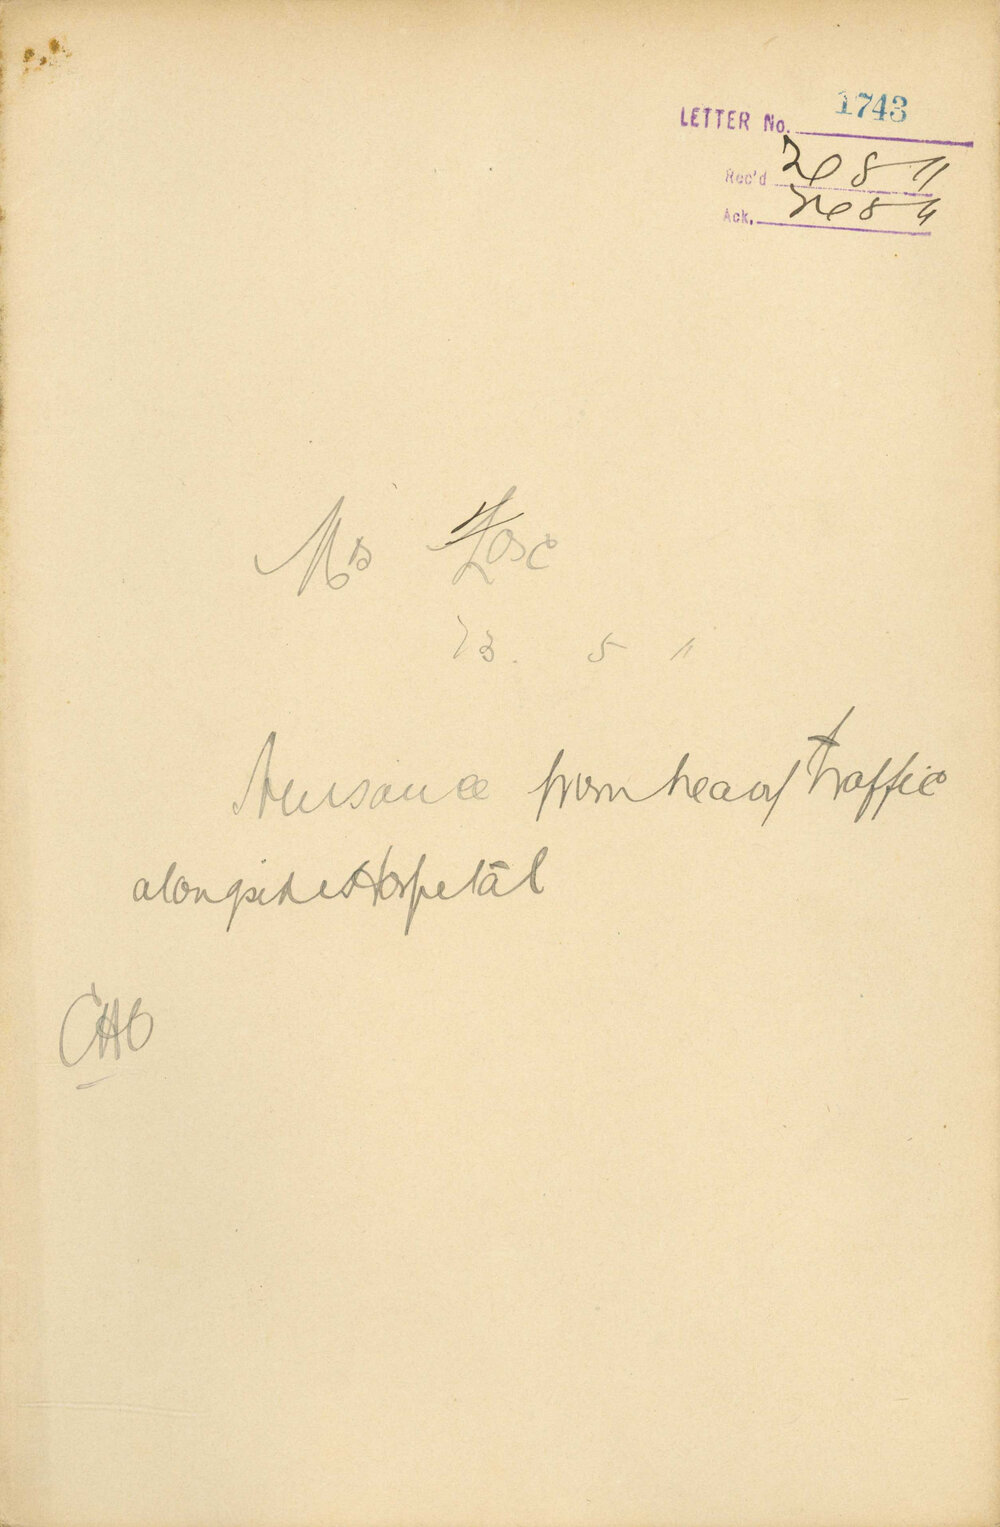 LETTER No. 1743
Rec'd 8 11
Ack. 8 11
23. 5 11
Nuisance from heavy traffic
alongside Hospital